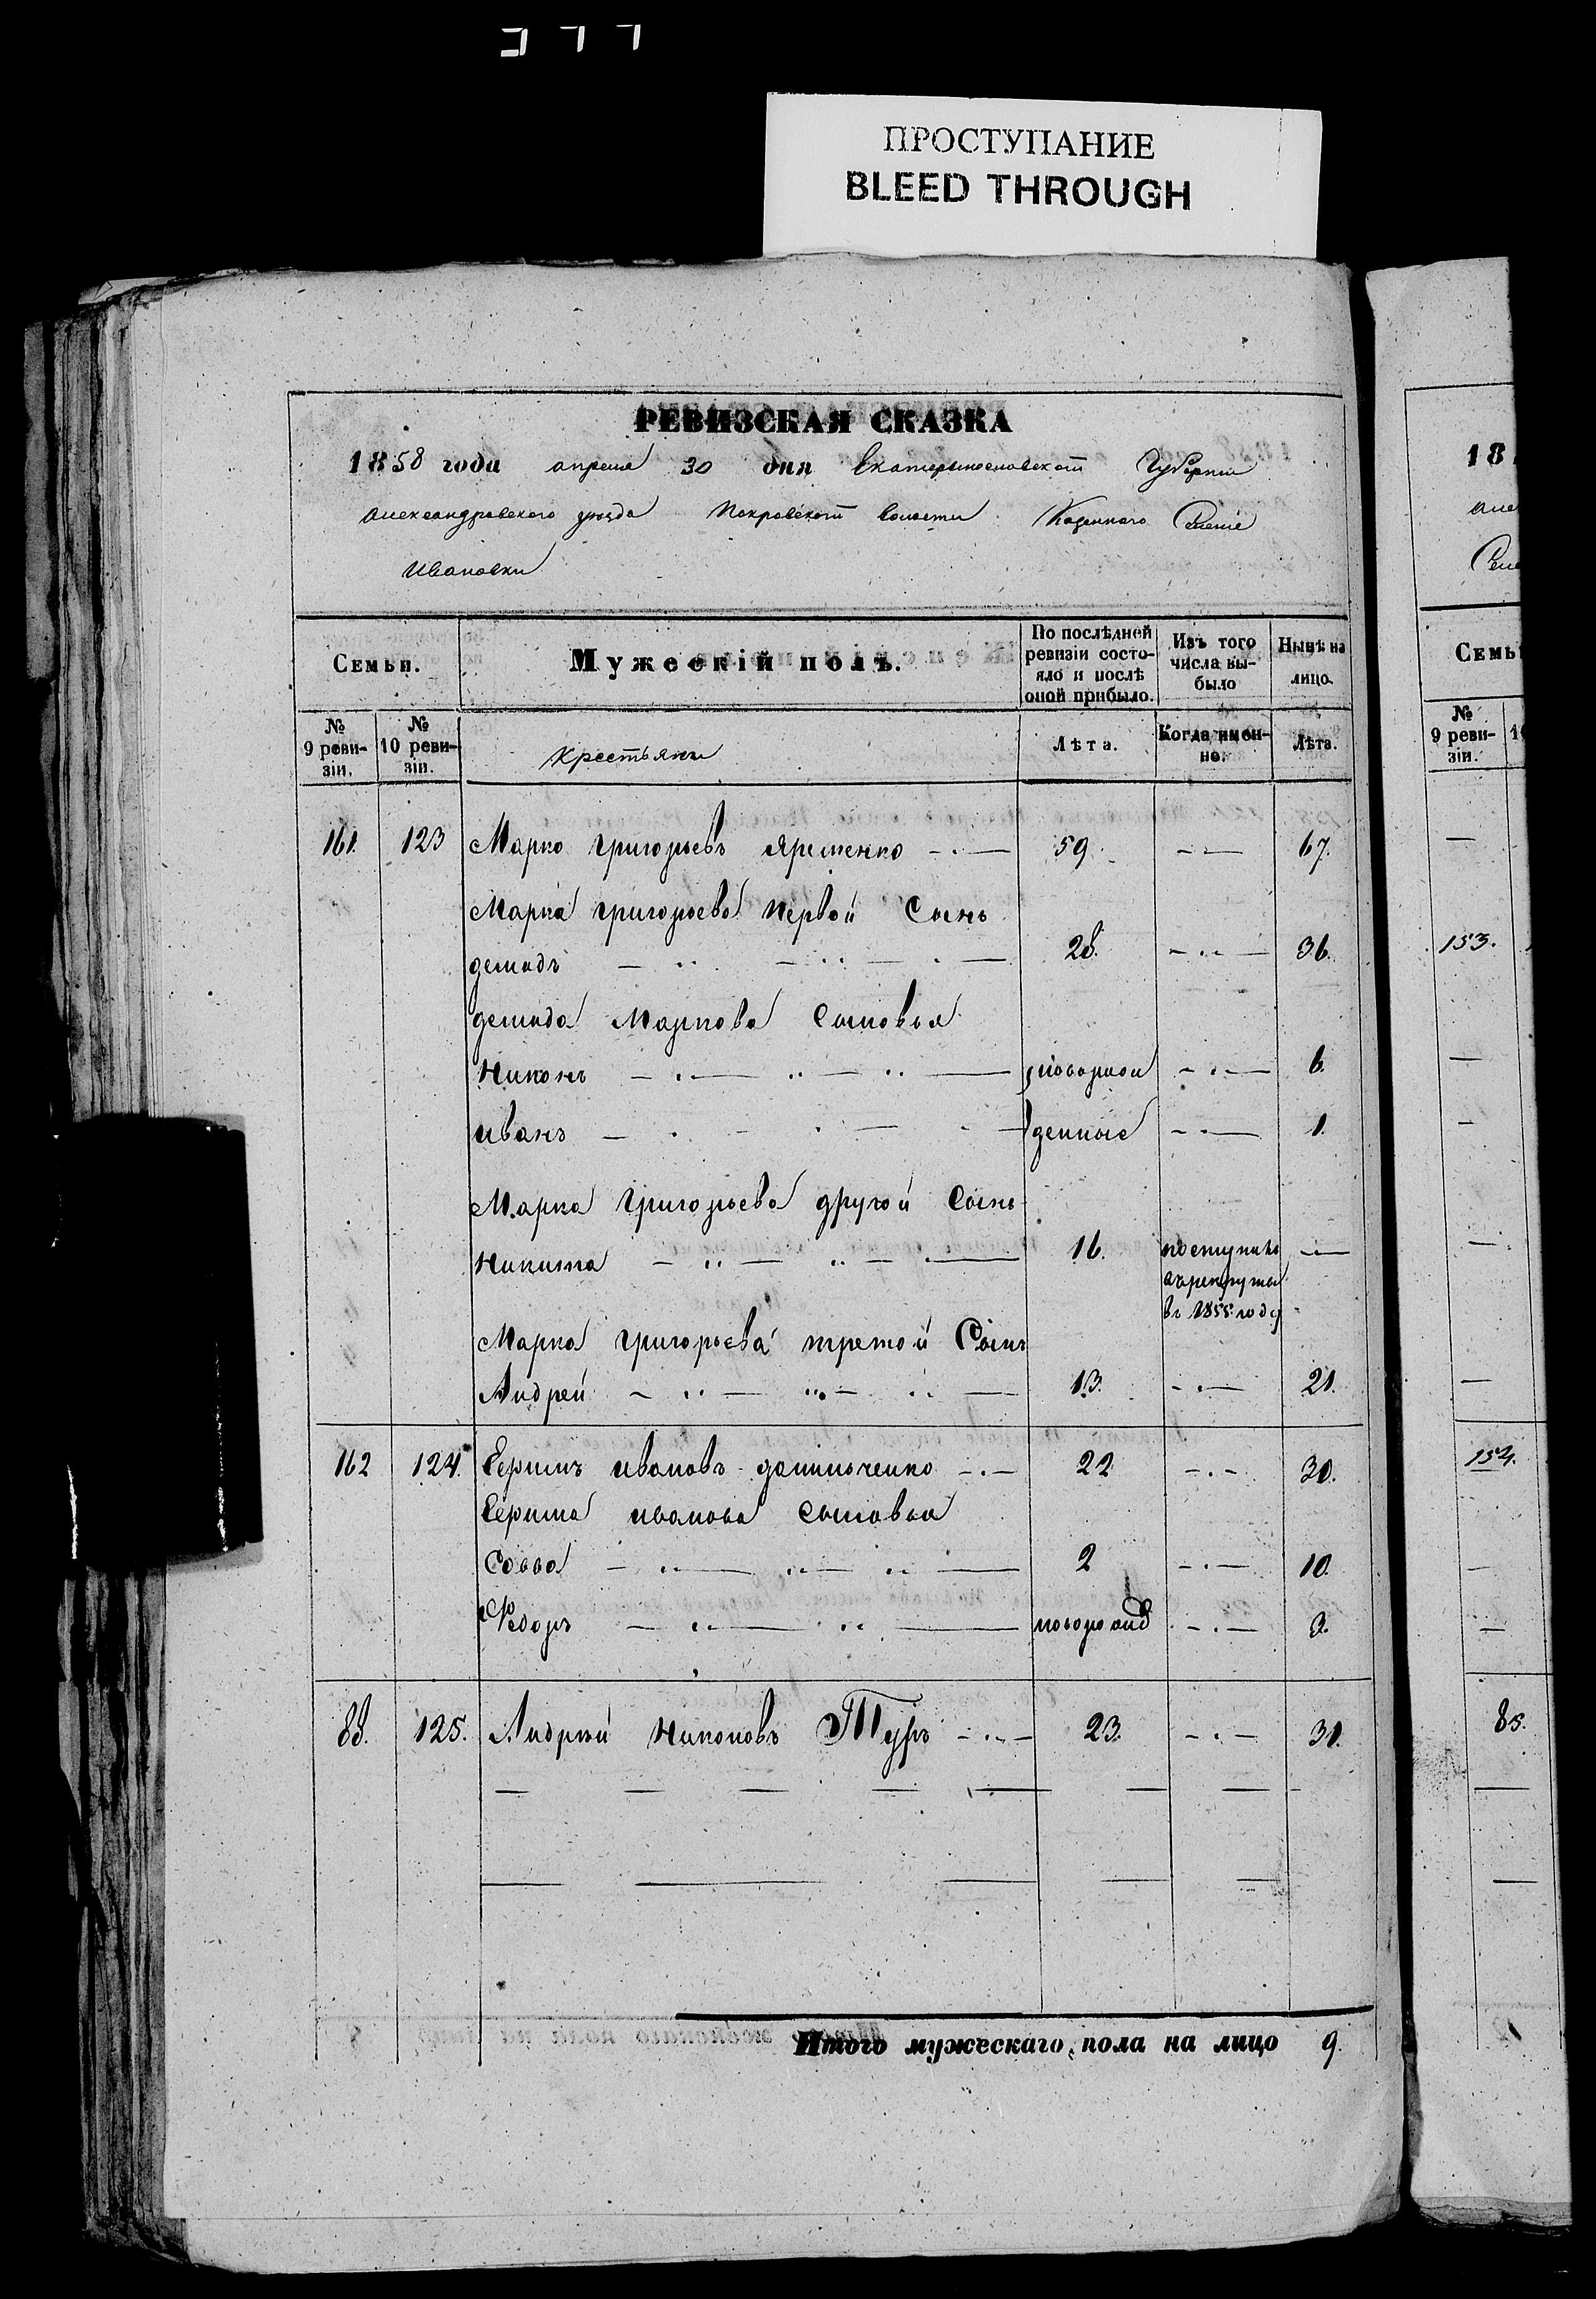 ПРОСТУПАНИЕ
BLEED THROUGH
РЕВИЗСКАЯ СКАЗКА
1858 года апреля 30 дня Екатеринославской Губернии
Александровского уезда Покровской волости Казенного Селенiе
Ивановки
Семьи. Мужескiй полъ. По послѣдней ревизiи состояло и послѣ оной прибыло. Изъ того числа выбыло Нынѣ на лицо.
№ 9 ревизiи. № 10 ревизiи. Крестьяне Лѣта. Когда именно. Лѣта.
161. 123 Марко Григорьевъ Яременко 59 67.
Марка Григорьева первой Сынъ
демидъ 28. 36.
демида Маркова Сыновья
Никонъ новорож 6.
иванъ денные 1.
Марка Григорьева другой Сынъ
Никита 16. поступилъ
в рекруты
въ 1855 году
Марка Григорьева третой Сынъ
Андрей 13. 21.
162 124. Ефимъ ивановъ 22 30.
Ефима иванова Сыновья
Савва 2 10.
Федоръ новорожд 3.
88. 125. Андрей Никоновъ Туръ 23. 31.
Итого мужескаго пола на лицо 9.
18
але
Селе
Семьи
№ 9 ревизiи.
153.
154.
85.